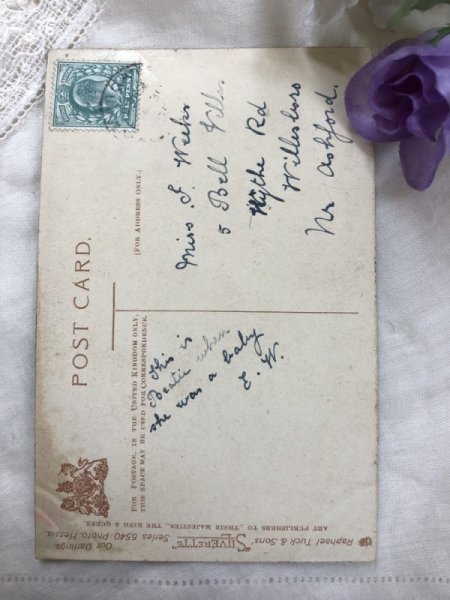 POST CARD.
FOR POSTAGE, IN THE UNITED KINGDOM ONLY,
THIS SPACE MAY BE USED FOR CORRESPONDENCE.
(FOR ADDRESS ONLY.)
This is
Beatie when
she was a baby
E. W.
Miss J Weeks
5 Bell Villas
Hythe Rd
Willesboro
Nr Ashford.
Raphael Tuck & Sons'
"SILVERETTE"
Our Darlings.
Series 6540. Photo, Hessia.
ART PUBLISHERS TO THEIR MAJESTIES, THE KING & QUEEN.